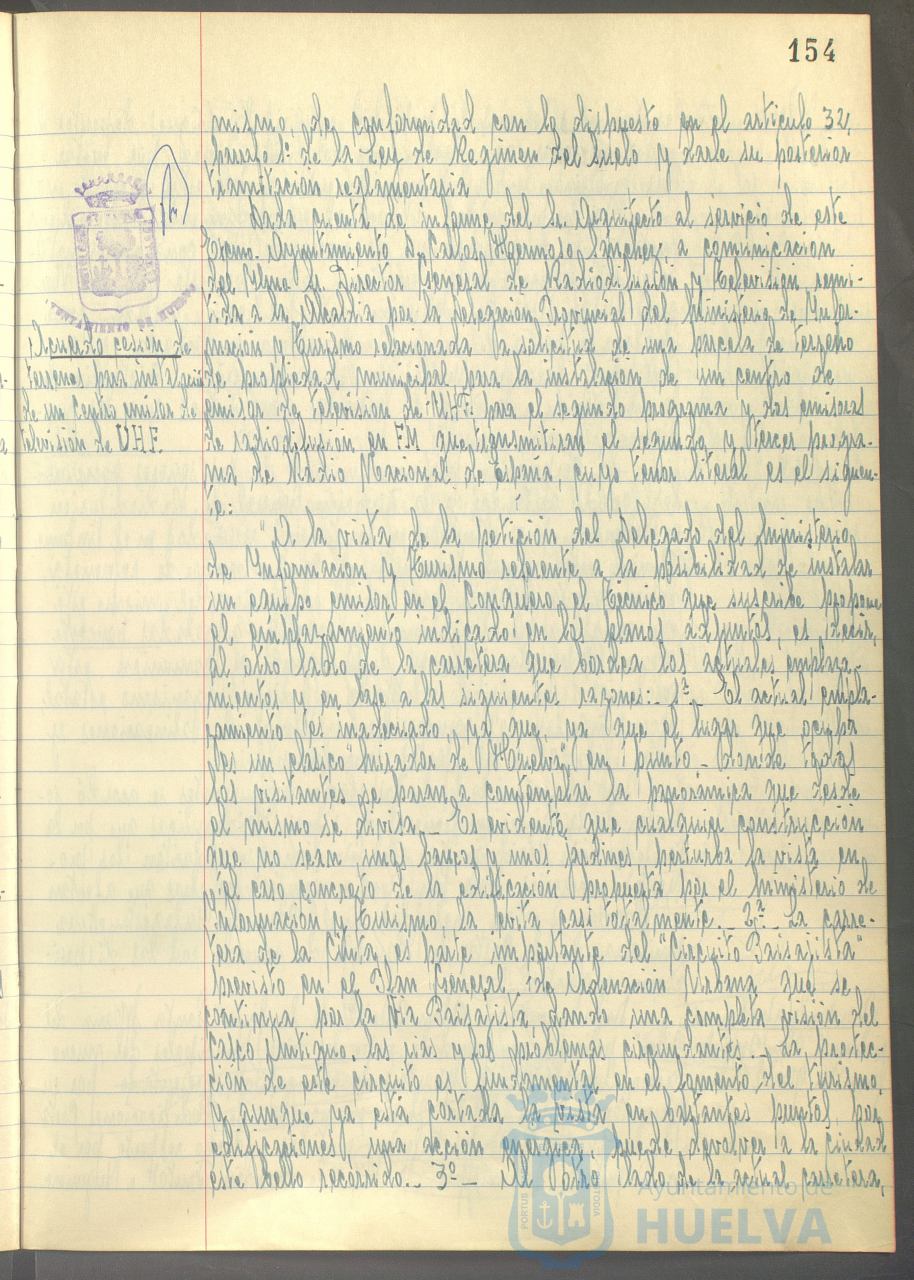 154
mismo, de conformidad con lo dispuesto en el articulo 32,
parrafo 1º de la Ley de Regimen del Suelo y darle su posterior
tramitación reglamentaria
Dada cuenta de informe del Sr. Arquitecto al servicio de este
Excmo. Ayuntamiento D. Carlos Hermoso Sanchez, a comunicacion
del Ilmo Sr. Director General de Radiodifusión y Television, remi-
tida a la Alcaldia por la Delegación Provincial del Ministerio de Infor-
Acuerdo cesion de
mación y Turismo relacionada la solicitud de una parcela de terreno
terrenos para instalación
de propiedad municipal para la instalación de un centro de
de un Centro emisor de
emisor de television de UHF. para el segundo programa y dos emisoras
televisión de UHF.
de radiodifusión en FM que transmitiran el segundo y tercer progra-
ma de Radio Nacional de España, cuyo tenor literal es el siguien-
te:
"A la vista de la petición del Delegado del Ministerio
de Informacion y Turismo referente a la posibilidad de instalar
un equipo emisor en el Conquero, el Técnico que suscribe propone
el emplazamiento indicado en los planos adjuntos, es decir,
al otro lado de la carretera que bordea los actuales empla-
mientos y en base a las siguientes razones: 1ª_ El actual empla-
zamiento es inadecuado, ya que, ya que el lugar que ocupa
es un clásico "Mirador de Huelva", en punto - donde todos
los visitantes se paran a contemplar la panorámica que desde
el mismo se divisa._ Es evidente que cualquier construcción
que no sean unos bancos y unos jardines perturba la vista en
el caso concreto de la edificación propuesta por el Ministerio de
Información y Turismo, la evita casi totalmente._ 2ª_ La carre-
tera de la Cinta, es parte importante del "Circuito Paisajista"
previsto en el Plan General de Ordenación Urbana que se
continua por la Via Paisajista, dando una completa visión del
Casco Antiguo, las rias y los problemas circundantes._ La protec-
ción de este circuito es fundamental en el fomento del turismo,
y aunque ya está cortada la vista en bastantes puntos por
edificaciones, una acción energica, puede devolver a la ciudad
este bello recorrido._ 3º_ Al otro lado de la actual carretera,
AYUNTAMIENTO DE HUELVA
Ayuntamiento de
HUELVA